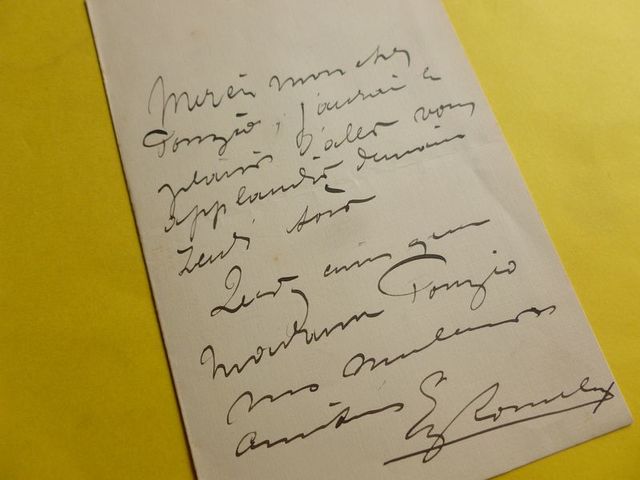 Merci mon cher
Ponzio, j'aurai le
plaisir d'aller vous
applaudir demain
Lundi soir
ainsi que
Madame Ponzio
mes meilleures
amitiés